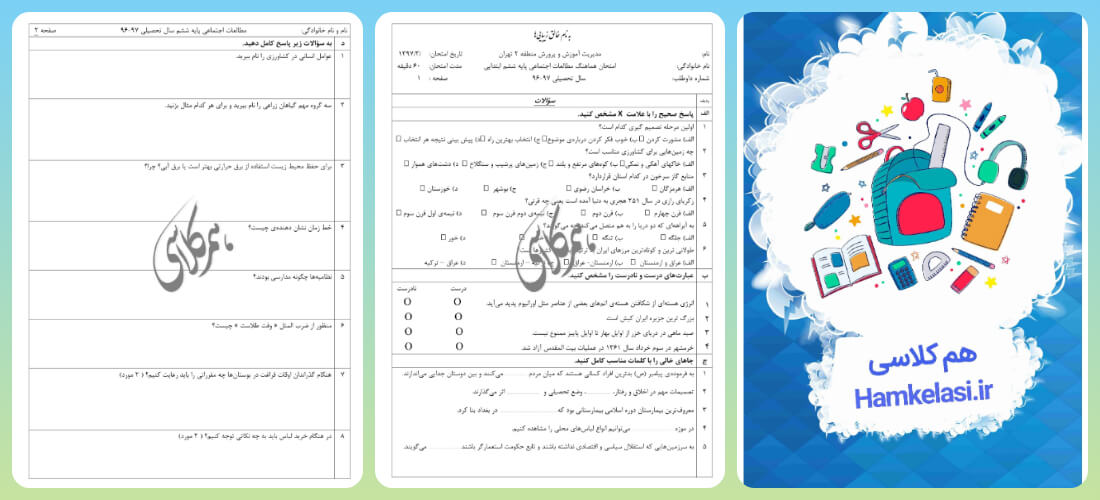 نام و نام خانوادگی: مطالعات اجتماعی پایه ششم سال تحصیلی ۹۷-۹۶ صفحه ۲
د به سؤالات زیر پاسخ کامل دهید.
۱ عوامل انسانی در کشاورزی را نام ببرید.
۲ سه گروه مهم گیاهان زراعی را نام ببرید و برای هر کدام مثال بزنید.
۳ برای حفظ محیط زیست استفاده از برق حرارتی بهتر است یا برق آبی؟ چرا؟
۴ خط زمان نشان دهنده‌ی چیست؟
۵ نظامیه‌ها چگونه مدارسی بودند؟
۶ منظور از ضرب المثل « وقت طلاست » چیست؟
۷ هنگام گذراندن اوقات فراغت در بوستان‌ها چه مقرراتی را باید رعایت کنیم؟ ( ۲ مورد)
۸ در هنگام خرید لباس باید به چه نکاتی توجه کنیم؟ ( ۲ مورد)
هم کلاسی
به نام خالق زیبایی‌ها
نام: مدیریت آموزش و پرورش منطقه ۲ تهران تاریخ امتحان: /۱۳۹۷/۳
نام خانوادگی: امتحان هماهنگ مطالعات اجتماعی پایه ششم ابتدایی مدت امتحان: ۶۰ دقیقه
شماره داوطلب: سال تحصیلی ۹۷-۹۶ صفحه : ۱
ردیف سؤالات
الف پاسخ صحیح را با علامت X مشخص کنید.
۱ اولین مرحله تصمیم گیری کدام است؟
الف) مشورت کردن ب) خوب فکر کردن درباره‌ی موضوع ج) انتخاب بهترین راه د) پیش بینی نتیجه هر انتخاب
۲ چه زمین‌هایی برای کشاورزی مناسب است؟
الف) خاکهای آهکی و نمکی ب) کوه‌های مرتفع و بلند ج) زمین‌های پرشیب و سنگلاخ د) دشت‌های هموار
۳ منابع گاز سرخون در کدام استان قراردارد؟
الف) هرمزگان ب) خراسان رضوی ج) بوشهر د) خوزستان
۴ زکریای رازی در سال ۲۵۱ هجری به دنیا آمده است یعنی چه قرنی؟
الف) قرن چهارم ب) قرن دوم ج) نیمه‌ی دوم قرن سوم د) نیمه‌ی اول قرن سوم
۵ به آبراهه‌ای که دو دریا را به هم متصل می‌کند چه می‌گویند؟
الف) جلگه ب) تنگه د) خور
۶ طولانی ترین و کوتاه‌ترین مرزهای ایران به ترتیب با کدام کشورها است؟
الف) عراق و ارمنستان ب) ارمنستان- عراق ج) ترکیه – ارمنستان د) عراق – ترکیه
ب عبارت‌های درست و نادرست را مشخص کنید.
درست نادرست
۱ انرژی هسته‌ای از شکافتن هسته‌ی اتم‌های بعضی از عناصر مثل اورانیوم پدید می‌آید. O O
۲ بزرگ ترین جزیره ایران کیش است. O O
۳ صید ماهی در دریای خزر از اوایل بهار تا اوایل پاییز ممنوع نیست. O O
۴ خرمشهر در سوم خرداد سال ۱۳۶۱ در عملیات بیت المقدس آزاد شد. O O
ج جاهای خالی را با کلمات مناسب کامل کنید.
۱ به فرموده‌ی پیامبر (ص) بدترین افراد کسانی هستند که میان مردم ............... می‌کنند و بین دوستان جدایی می‌اندازند.
۲ تصمیمات مهم در اخلاق و رفتار، ............... وضع تحصیلی و ............... اثر می‌گذارند.
۳ معروف‌ترین بیمارستان دوره اسلامی بیمارستانی بود که ............... در بغداد بنا کرد.
۴ در موزه ............... می‌توانیم انواع لباس‌های محلی را مشاهده کنیم.
۵ به سرزمین‌هایی که استقلال سیاسی و اقتصادی نداشته باشند و تابع حکومت استعمارگر باشند ............... می‌گویند.
هم کلاسی
هم کلاسی
Hamkelasi.ir